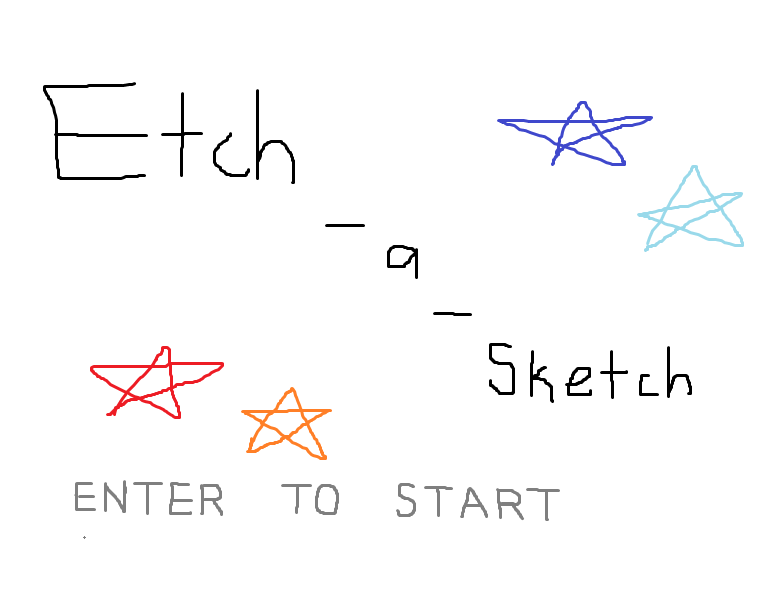 Etch
-
a
-
Sketch
ENTER TO START